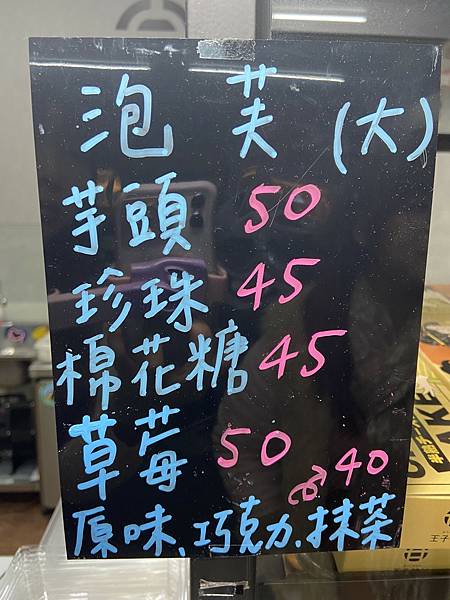 泡芙(大)
芋頭 50
珍珠 45
棉花糖 45
草莓 50
40
原味、巧克力、抹茶
王子